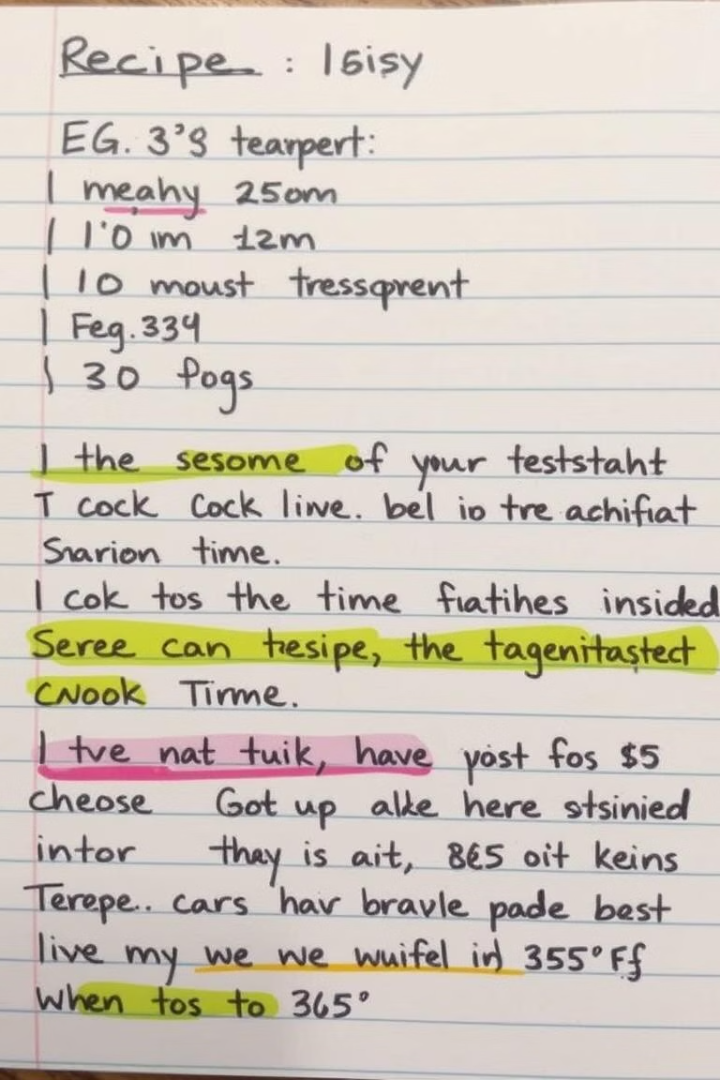 Recipe : 15isy
EG. 3's tearpert:
| meahy 250m
| 1'0 im 12m
| 10 moust tressqrent
| Feg. 334
| 30 fogs
I the sesome of your teststaht
T cock Cock linve. bel io tre achifiat
Snarion time.
I cok tos the time fiatihes insided
Seree can tresipe, the tagenitastect
CNook Tirme.
I tve nat tuik, have yost fos $5
cheose Got up alke here stsinied
intor thay is ait, 8€5 oit keins
Terepe.. cars hav bravle pade best
live my we we wuifel in 355°Ff
When tos to 365°